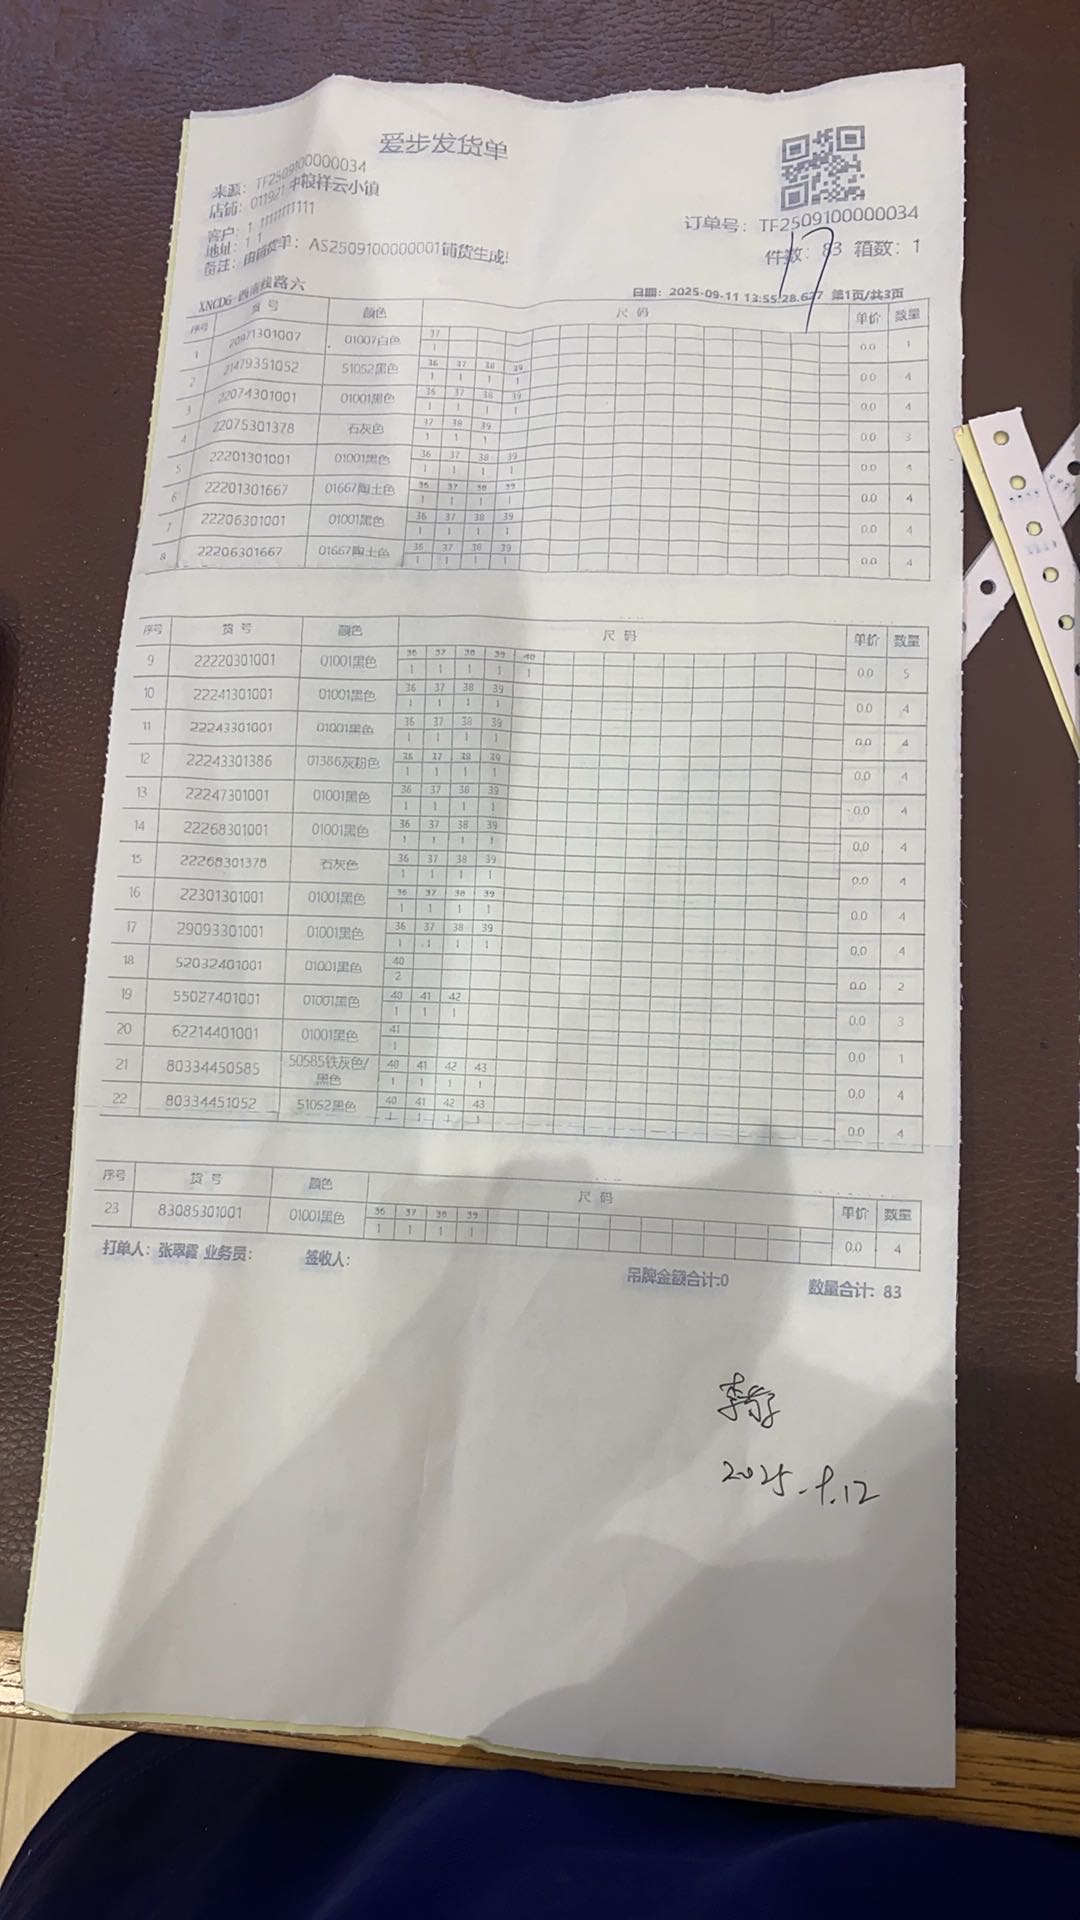 爱步发货单
来源：TF2509100000034
店铺：011921 中粮祥云小镇
客户：1 1111111111
地址：1 1
备注：由铺货单：AS2509100000001铺货生成!
订单号：TF2509100000034
件数：83 箱数：1
17
XNCDG 西南线路六
日期：2025-09-11 13:55:28.627 第1页/共3页
序号 货号 颜色 尺码 单价 数量
1 20971301007 01007白色 37 0.0 1
1
2 21479351052 51052黑色 36 37 38 39 0.0 4
1 1 1 1
3 22074301001 01001黑色 36 37 38 39 0.0 4
1 1 1 1
4 22075301378 石灰色 37 38 39 0.0 3
1 1 1
5 22201301001 01001黑色 36 37 38 39 0.0 4
1 1 1 1
6 22201301667 01667陶土色 36 37 38 39 0.0 4
1 1 1 1
7 22206301001 01001黑色 36 37 38 39 0.0 4
1 1 1 1
8 22206301667 01667陶土色 36 37 38 39 0.0 4
1 1 1 1
序号 货号 颜色 尺码 单价 数量
9 22220301001 01001黑色 36 37 38 39 40 0.0 5
1 1 1 1 1
10 22241301001 01001黑色 36 37 38 39 0.0 4
1 1 1 1
11 22243301001 01001黑色 36 37 38 39 0.0 4
1 1 1 1
12 22243301386 01386灰粉色 36 37 38 39 0.0 4
1 1 1 1
13 22247301001 01001黑色 36 37 38 39 0.0 4
1 1 1 1
14 22268301001 01001黑色 36 37 38 39 0.0 4
1 1 1 1
15 22268301378 石灰色 36 37 38 39 0.0 4
1 1 1 1
16 22301301001 01001黑色 36 37 38 39 0.0 4
1 1 1 1
17 29093301001 01001黑色 36 37 38 39 0.0 4
1 1 1 1
18 52032401001 01001黑色 40 0.0 2
2
19 55027401001 01001黑色 40 41 42 0.0 3
1 1 1
20 62214401001 01001黑色 41 0.0 1
1
21 80334450585 50585铁灰色/黑色 40 41 42 43 0.0 4
1 1 1 1
22 80334451052 51052黑色 40 41 42 43 0.0 4
1 1 1 1
序号 货号 颜色 尺码 单价 数量
23 83085301001 01001黑色 36 37 38 39 0.0 4
1 1 1 1
打单人：张翠霞 业务员： 签收人： 吊牌金额合计:0 数量合计：83
2025.9.12